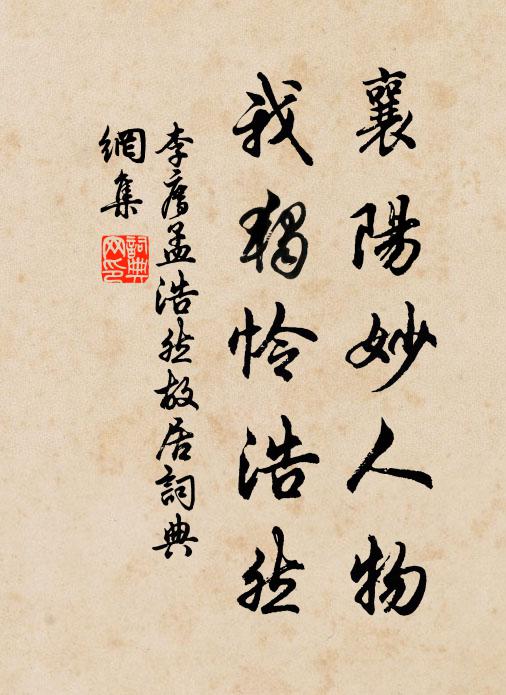 襄陽妙人物
我獨憐浩然
李廌孟浩然故居詞典
網集
詞典
网印